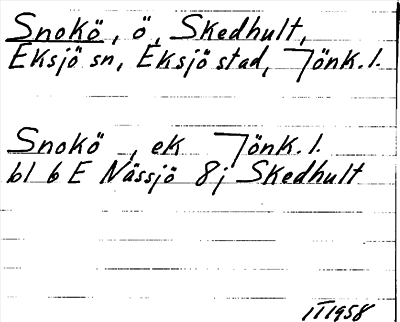 Snokö, ö, Skedhult,
Eksjö sn, Eksjö stad, Jönk. l.
Snokö, ek Jönk. l.
bl 6 E Nässjö 8j Skedhult
III 1958